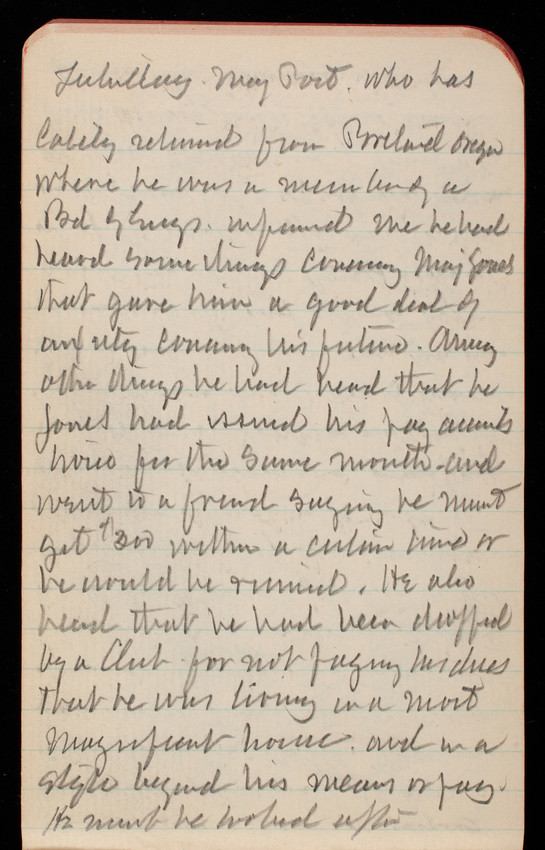 Maj Post. who has
lately returned from Portland Oregon
where he was a member of a
Bd of Engs. informed me he had
heard some things concerning Maj Jones
that gave him a good deal of
anxiety concerning his future. Among
other things he had heard that he
Jones had issued his pay accounts
twice for the same month and
went to a friend saying he must
get $300 within a certain time or
he would be ruined. He also
heard that he had been dropped
by a Club for not paying his dues
that he was living in a most
magnificent house and in a
style beyond his means or pay.
He must be looked after